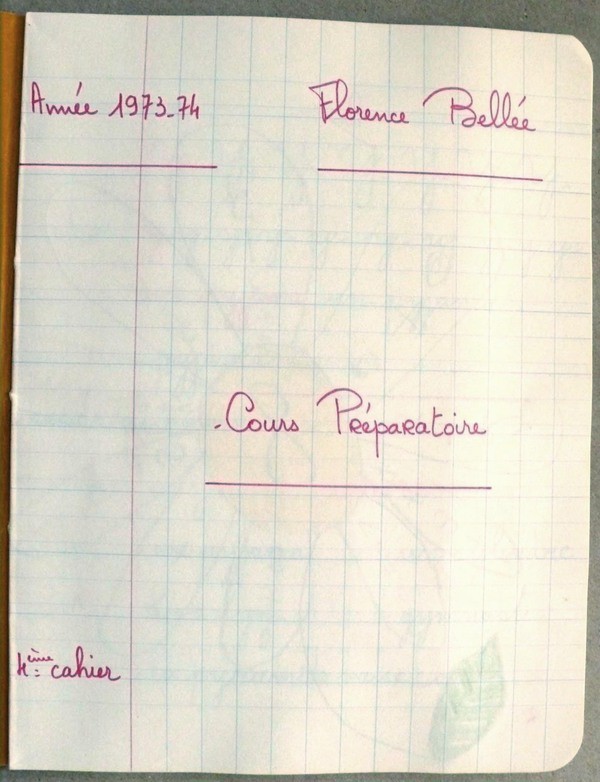 Année 1973-74
Florence Bellée
Cours Préparatoire
4ème cahier